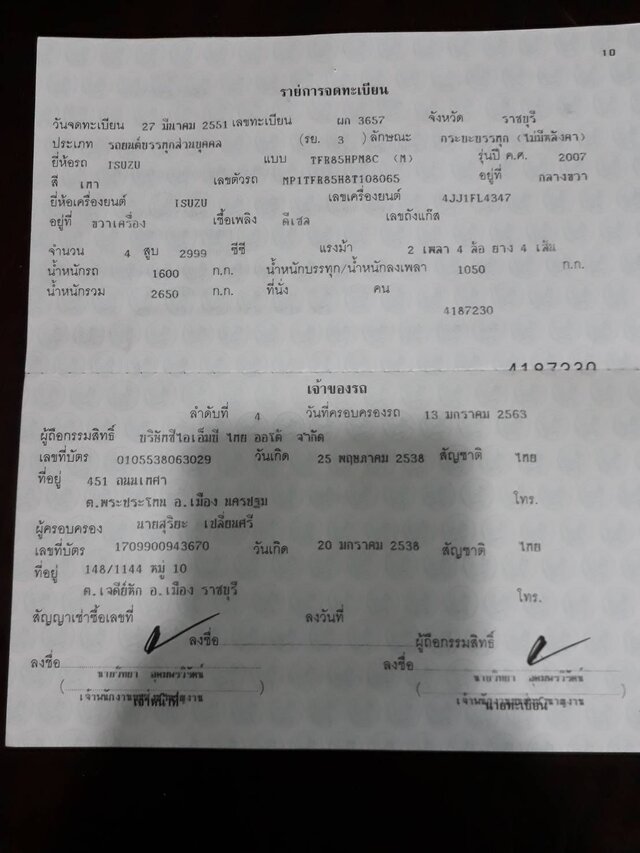 10
รายการจดทะเบียน
วันจดทะเบียน 27 มีนาคม 2551 เลขทะเบียน ผก 3657 จังหวัด ราชบุรี
ประเภท รถยนต์บรรทุกส่วนบุคคล (รย. 3 ) ลักษณะ กระบะบรรทุก (ไม่มีหลังคา)
ยี่ห้อรถ ISUZU แบบ TFR85HPM8C (M) รุ่นปี ค.ศ. 2007
สี เทา เลขตัวรถ MP1TFR85H8T108065 อยู่ที่ กลางขวา
ยี่ห้อเครื่องยนต์ ISUZU เลขเครื่องยนต์ 4JJ1FL4347
อยู่ที่ ขวาเครื่อง เชื้อเพลิง ดีเซล เลขถังแก๊ส
จำนวน 4 สูบ 2999 ซีซี แรงม้า 2 เพลา 4 ล้อ ยาง 4 เส้น
น้ำหนักรถ 1600 ก.ก. น้ำหนักบรรทุก/น้ำหนักลงเพลา 1050 ก.ก.
น้ำหนักรวม 2650 ก.ก. ที่นั่ง คน
4187230
4187230
เจ้าของรถ
ลำดับที่ 4 วันที่ครอบครองรถ 13 มกราคม 2563
ผู้ถือกรรมสิทธิ์ บริษัทซีไอเอ็มบี ไทย ออโต้ จำกัด
เลขที่บัตร 0105538063029 วันเกิด 25 พฤษภาคม 2538 สัญชาติ ไทย
ที่อยู่ 451 ถนนเทศา
ต.พระประโทน อ.เมือง นครปฐม โทร.
ผู้ครอบครอง นายสุริยะ เปลี่ยนศรี
เลขที่บัตร 1709900943670 วันเกิด 20 มกราคม 2538 สัญชาติ ไทย
ที่อยู่ 148/1144 หมู่ 10
ต.เจดีย์หัก อ.เมือง ราชบุรี โทร.
สัญญาเช่าซื้อเลขที่ ลงวันที่
ลงชื่อ ผู้ถือกรรมสิทธิ์
ลงชื่อ ลงชื่อ
นายวิทยา นายวิทยา
เจ้าหน้าที่ นายทะเบียน